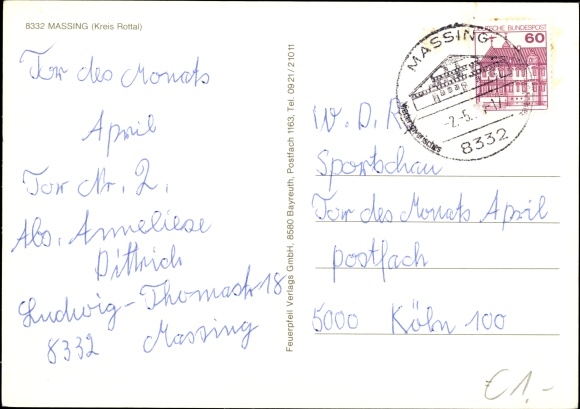 8332 MASSING (Kreis Rottal)
Tor des Monats
April
Tor Nr. 2.
Abs. Anneliese
Dittrich
Ludwig-Thomastr 18
8332 Massing
Feuerpfeil Verlags GmbH, 8580 Bayreuth, Postfach 1163, Tel. 0921/21011
DEUTSCHE BUNDESPOST
60
MASSING
-2.-5.
8332
W. D. R
Sportschau
Tor des Monats April
postfach
5000 Köln 100
€1.-